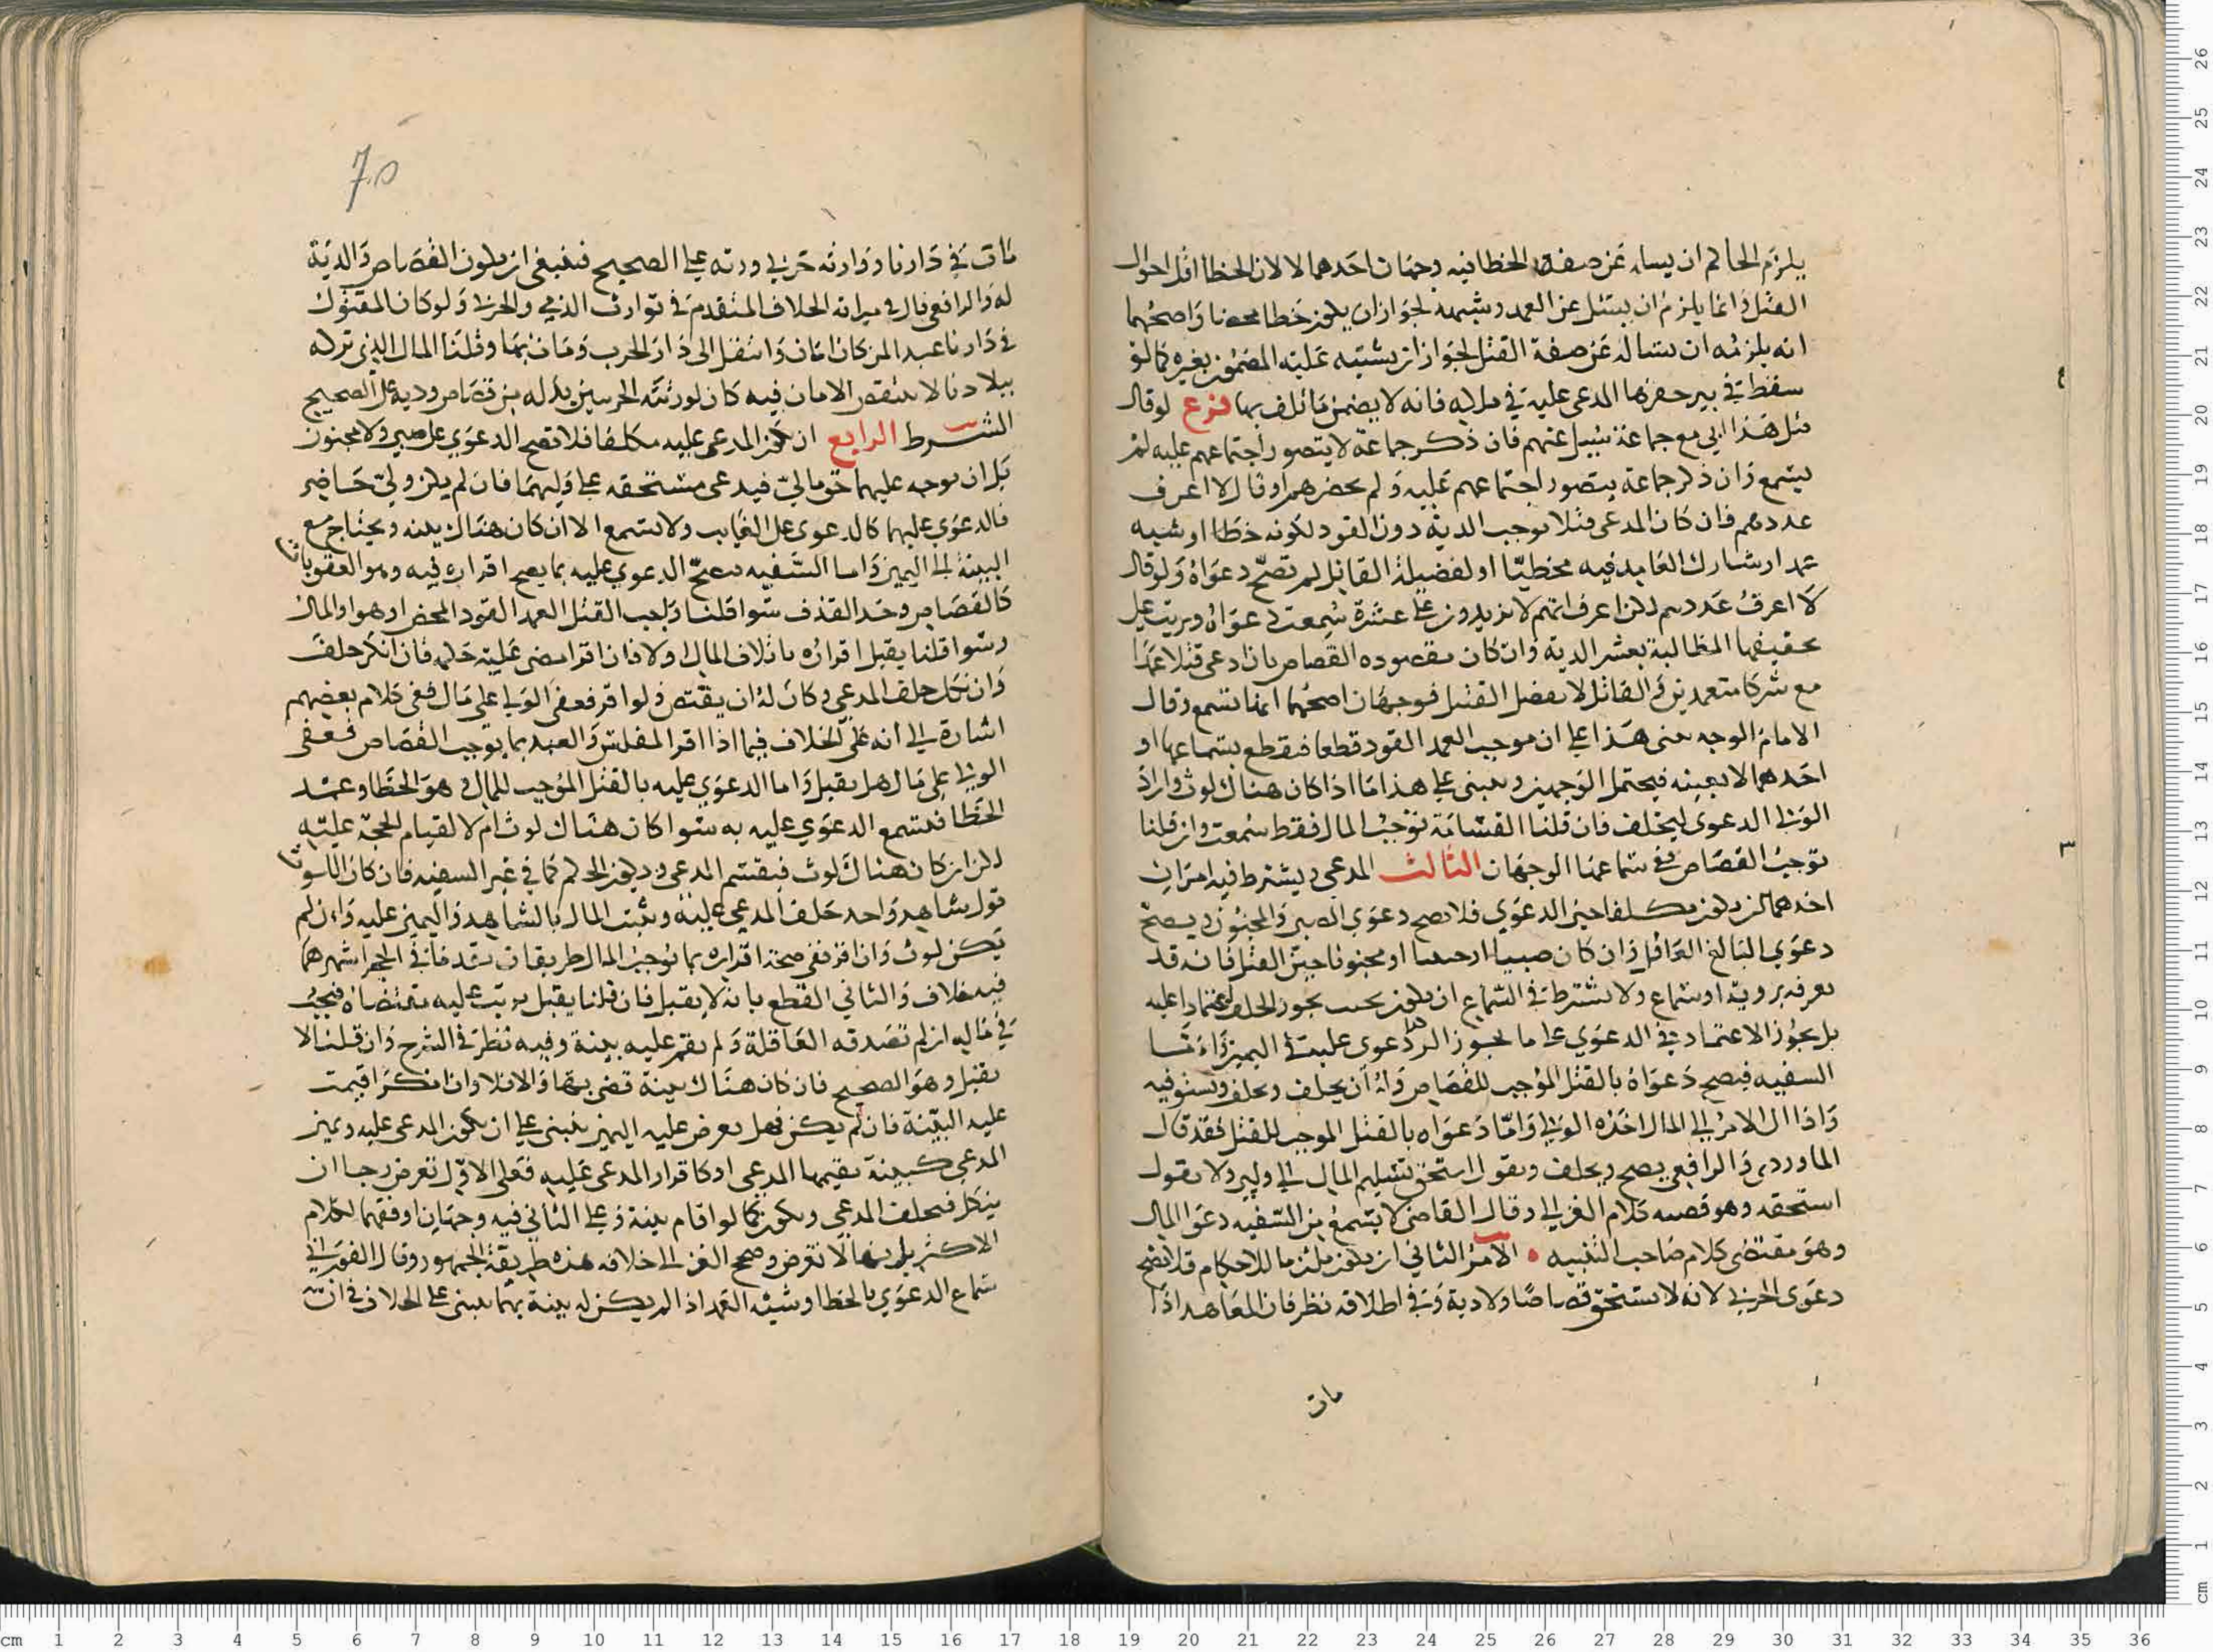 يلزم الحاكم ان يساله عن صفة الخطا فيه وجهان احدهما لا لان الخطا اقل احوال
القتل وانما يلزم ان يسئل عن العمد وشبهه لجواز ان يكون خطا محضا واصحهما
انه يلزمه ان يساله عن صفة القتل لجواز ان يشتبه عليه المضمون بغيره كما لو
سقط في بير حفرها المدعى عليه في ملكه فانه لا يضمن ما تلف بها فرع لو قال
قتل هذا ابي مع جماعة سيل عنهم فان ذكر جماعة لا يتصور اجتماعهم عليه لم
يسمع وان ذكر جماعة يتصور اجتماعهم عليه ولم يحضرهم او قال لا اعرف
عددهم فان كان المدعى قتلا يوجب الدية دون القود لكونه خطا او شبه
عمد او شارك العامد فيه مخطيا او لفضيلة القاتل لم تصح دعواه ولو قال
لا اعرف عددهم لكن اعرف انهم لا يزيدون على عشرة سمعت دعواه وترتب على
تحقيقها المطالبة بعشر الدية وان كان مقصوده القصاص بان ادعى قتلا عمدا
مع شركا متعمدين والقاتل لا يفضل القتيل فوجهان اصحهما انها تسمع وقال
الامام الوجه بنى هذا على ان موجب العمد القود قطعا فيقطع بسماعها او
احدهما لا بعينه فيحتمل الوجهين ويبنى على هذا ما اذا كان هناك لوث واراد
الولي الدعوى ليحلف فان قلنا القسامة توجب المال فقط سمعت وان قلنا
توجب القصاص ففي سماعها الوجهان الثالث المدعي ويشترط فيه امران
احدهما ان يكون مكلفا حين الدعوى فلا تصح دعوى الصبي والمجنون ويصح
دعوى البالغ العاقل وان كان صبيا او مجنونا حين القتل فانه قد
يعرفه بروية او سماع ولا يشترط في السماع ان يكون بحيث يجوز الحلف اعتمادا عليه
بل يجوز الاعتماد في الدعوى على ما يجوز الدعوى عليه اليمين واما
السفيه فيصح دعواه بالقتل الموجب للقصاص وله ان يحلف ويحلف ويستوفيه
واذا آل الامر الى المال اخذه الولي واما دعواه بالقتل الموجب للقتل فقد قال
الماوردي والرافعي يصح ويحلف ويقول استحق تسليم المال الى وليي ولا يقول
استحقه وهو قضيه كلام الغزالي وقال القاضي لا يسمع من السفيه دعوى المال
وهو مقتضى كلام صاحب التنبيه • الامر الثاني ان يكون ملتزما للاحكام فلا تصح
دعوى الحربي لانه لا يستحق قصاصا ولا دية وفي اطلاقه نظر فان المعاهد اذا
مات
٧٠٥
مات في دارنا ووارثه حربي ورثه على الصحيح فينبغي ان يكون القصاص والدية
له والرافعي قال في ميراثه الخلاف المتقدم في توارث الذمي والحربي ولو كان المقتول
في دارنا عبدا لمن كان امان وانتقل الى دار الحرب ومات بها وقلنا المال الذي تركه
ببلادنا لا ينتقض الامان فيه كان لورثته الحربيين بدله من قصاص ودية على الصحيح
الشرط الرابع ان يكون المدعى عليه مكلفا فلا تصح الدعوى على صبي ولا مجنون
بل ان توجه عليهما حق مالي فيدعي مستحقه على وليهما فان لم يكن ولي حاضر
فالدعوى عليهما كالدعوى على الغايب ولا تسمع الا ان كان هناك بينة ويحتاج مع
البينة الى اليمين واما السفيه فتصح الدعوى عليه بما يصح اقراره فيه وهو العقوبات
كالقصاص وحد القذف سوا قلنا واجب القتل العمد القود المحض او هو او المال
وسوا قلنا يقبل اقراره باتلاف المال ولا فان اقر امضى عليه حكمه فان انكر حلف
وان نكل حلف المدعي وكان له ان يقتص ولو اقر فعفى الولي على مال ففي كلام بعضهم
اشارة الى انه على الخلاف فيما اذا اقر المفلس والعبد بما يوجب القصاص فعفى
الولي على مال هل يقبل واما الدعوى عليه بالقتل الموجب للمال وهو الخطا وعمد
الخطا فتسمع الدعوى عليه به سوا كان هناك لوث ام لا لقيام الحجة عليه
لكن ان كان هناك لوث فيقسم المدعي ويكون الحكم كما في غير السفيه فان كان اللوث
قول شاهد واحد حلف المدعي عليه ويثبت المال بالشاهد واليمين عليه وان لم
يكن لوث وان اقر ففي صحة اقراره بما يوجب المال طريقان تقدما في الحجر اشهرهما
فيه خلاف والثاني القطع بانه لا يقبل فان قلنا يقبل يرتب عليه مقتضاه فيجب
في ماله ان لم تصدقه العاقلة ولم يقم عليه بينة وفيه نظر في الشرح وان قلنا لا
يقبل وهو الصحيح فان كان هناك بينة قضي بها والا فلا وان انكر اقيمت
عليه البينة فان لم يكن فهل يعرض عليه اليمين يبنى على ان نكول المدعى عليه ويمين
المدعي كبينة يقيمها المدعي او كاقرار المدعى عليه فعلى الاول تعرض رجا ان
ينكل فيحلف المدعي ويكون كما لو اقام بينة وعلى الثاني فيه وجهان اوفقهما لكلام
الاكثرين انها لا تعرض وصحح الغزالي خلافه هذه طريقة الجمهور وقال الفوراني
سماع الدعوى بالخطا وشبه العمد اذا لم يكن له بينة بهما يبنى على الخلاف في ان